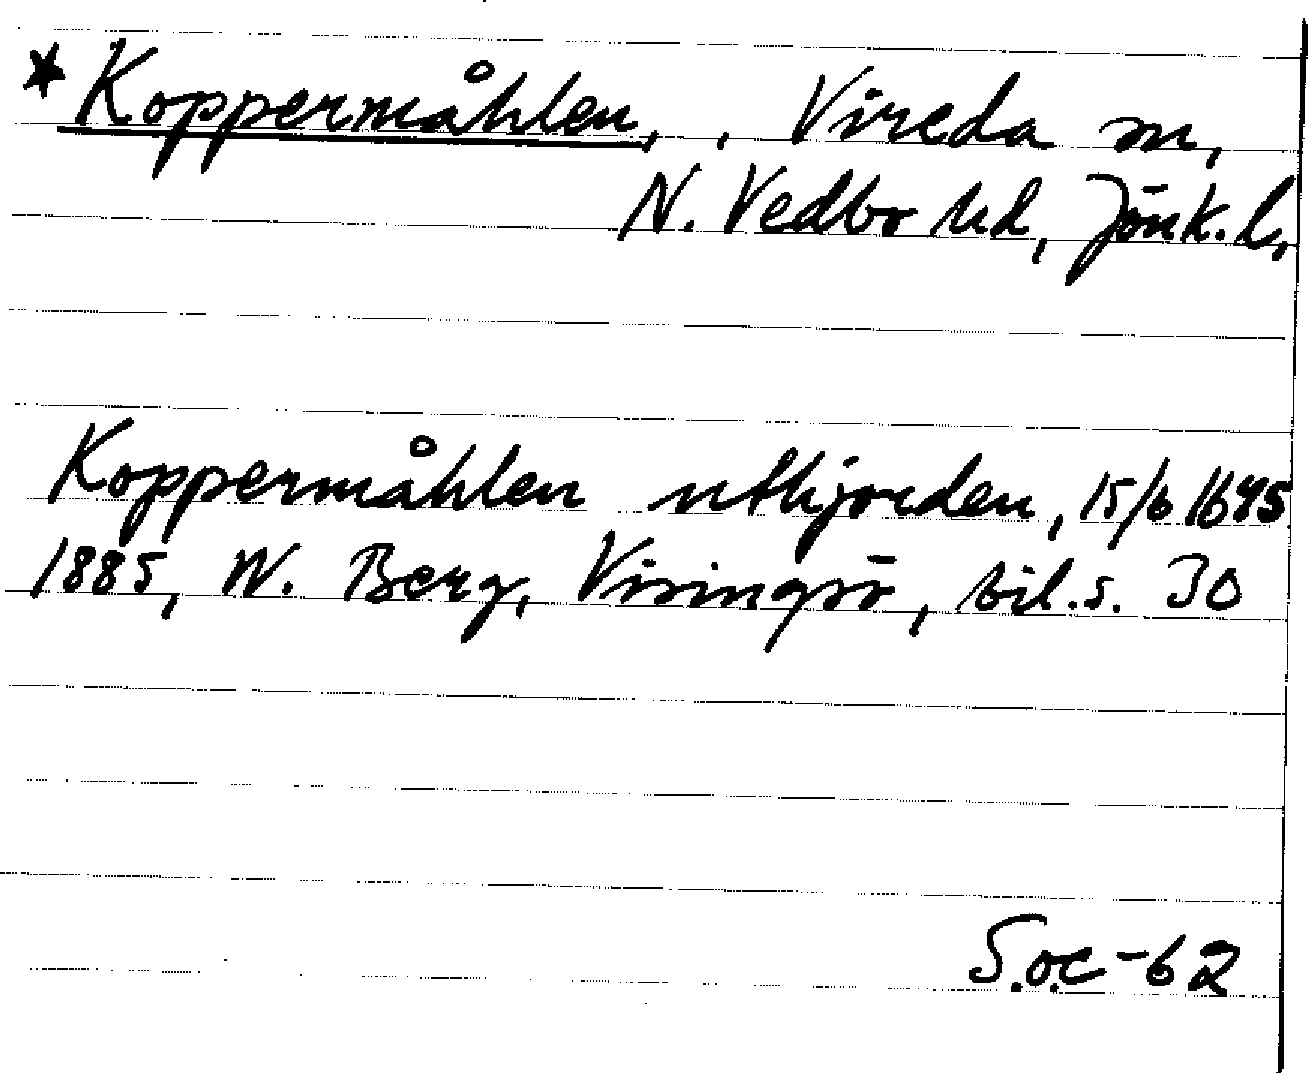 * Koppermåhlen, , Vireda sn,
N. Vedbo hd, Jönk. l,
Koppermåhlen uthjorden, 15/6 1645
1885, W. Berg, Visingsö, bil. s. 30
S.o.c-62